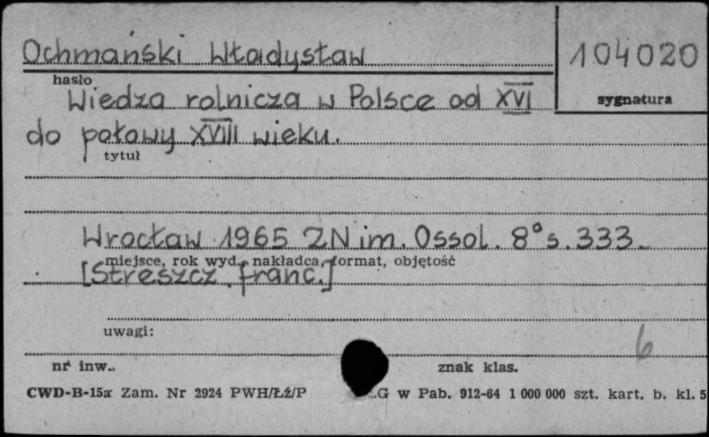 Ochmański Władysław 104020
hasło
sygnatura
Wiedza rolnicza w Polsce od XVI
do połowy XVIII wieku.
tytuł
Wrocław 1965 ZN im. Ossol. 8° s. 333.
miejsce, rok wyd., nakładca, format, objętość
[Streszcz. franc.]
uwagi:
6
nr inw. znak klas.
CWD-B-15a Zam. Nr 2924 PWH/Łź/P G w Pab. 912-64 1 000 000 szt. kart. b. kl. 5